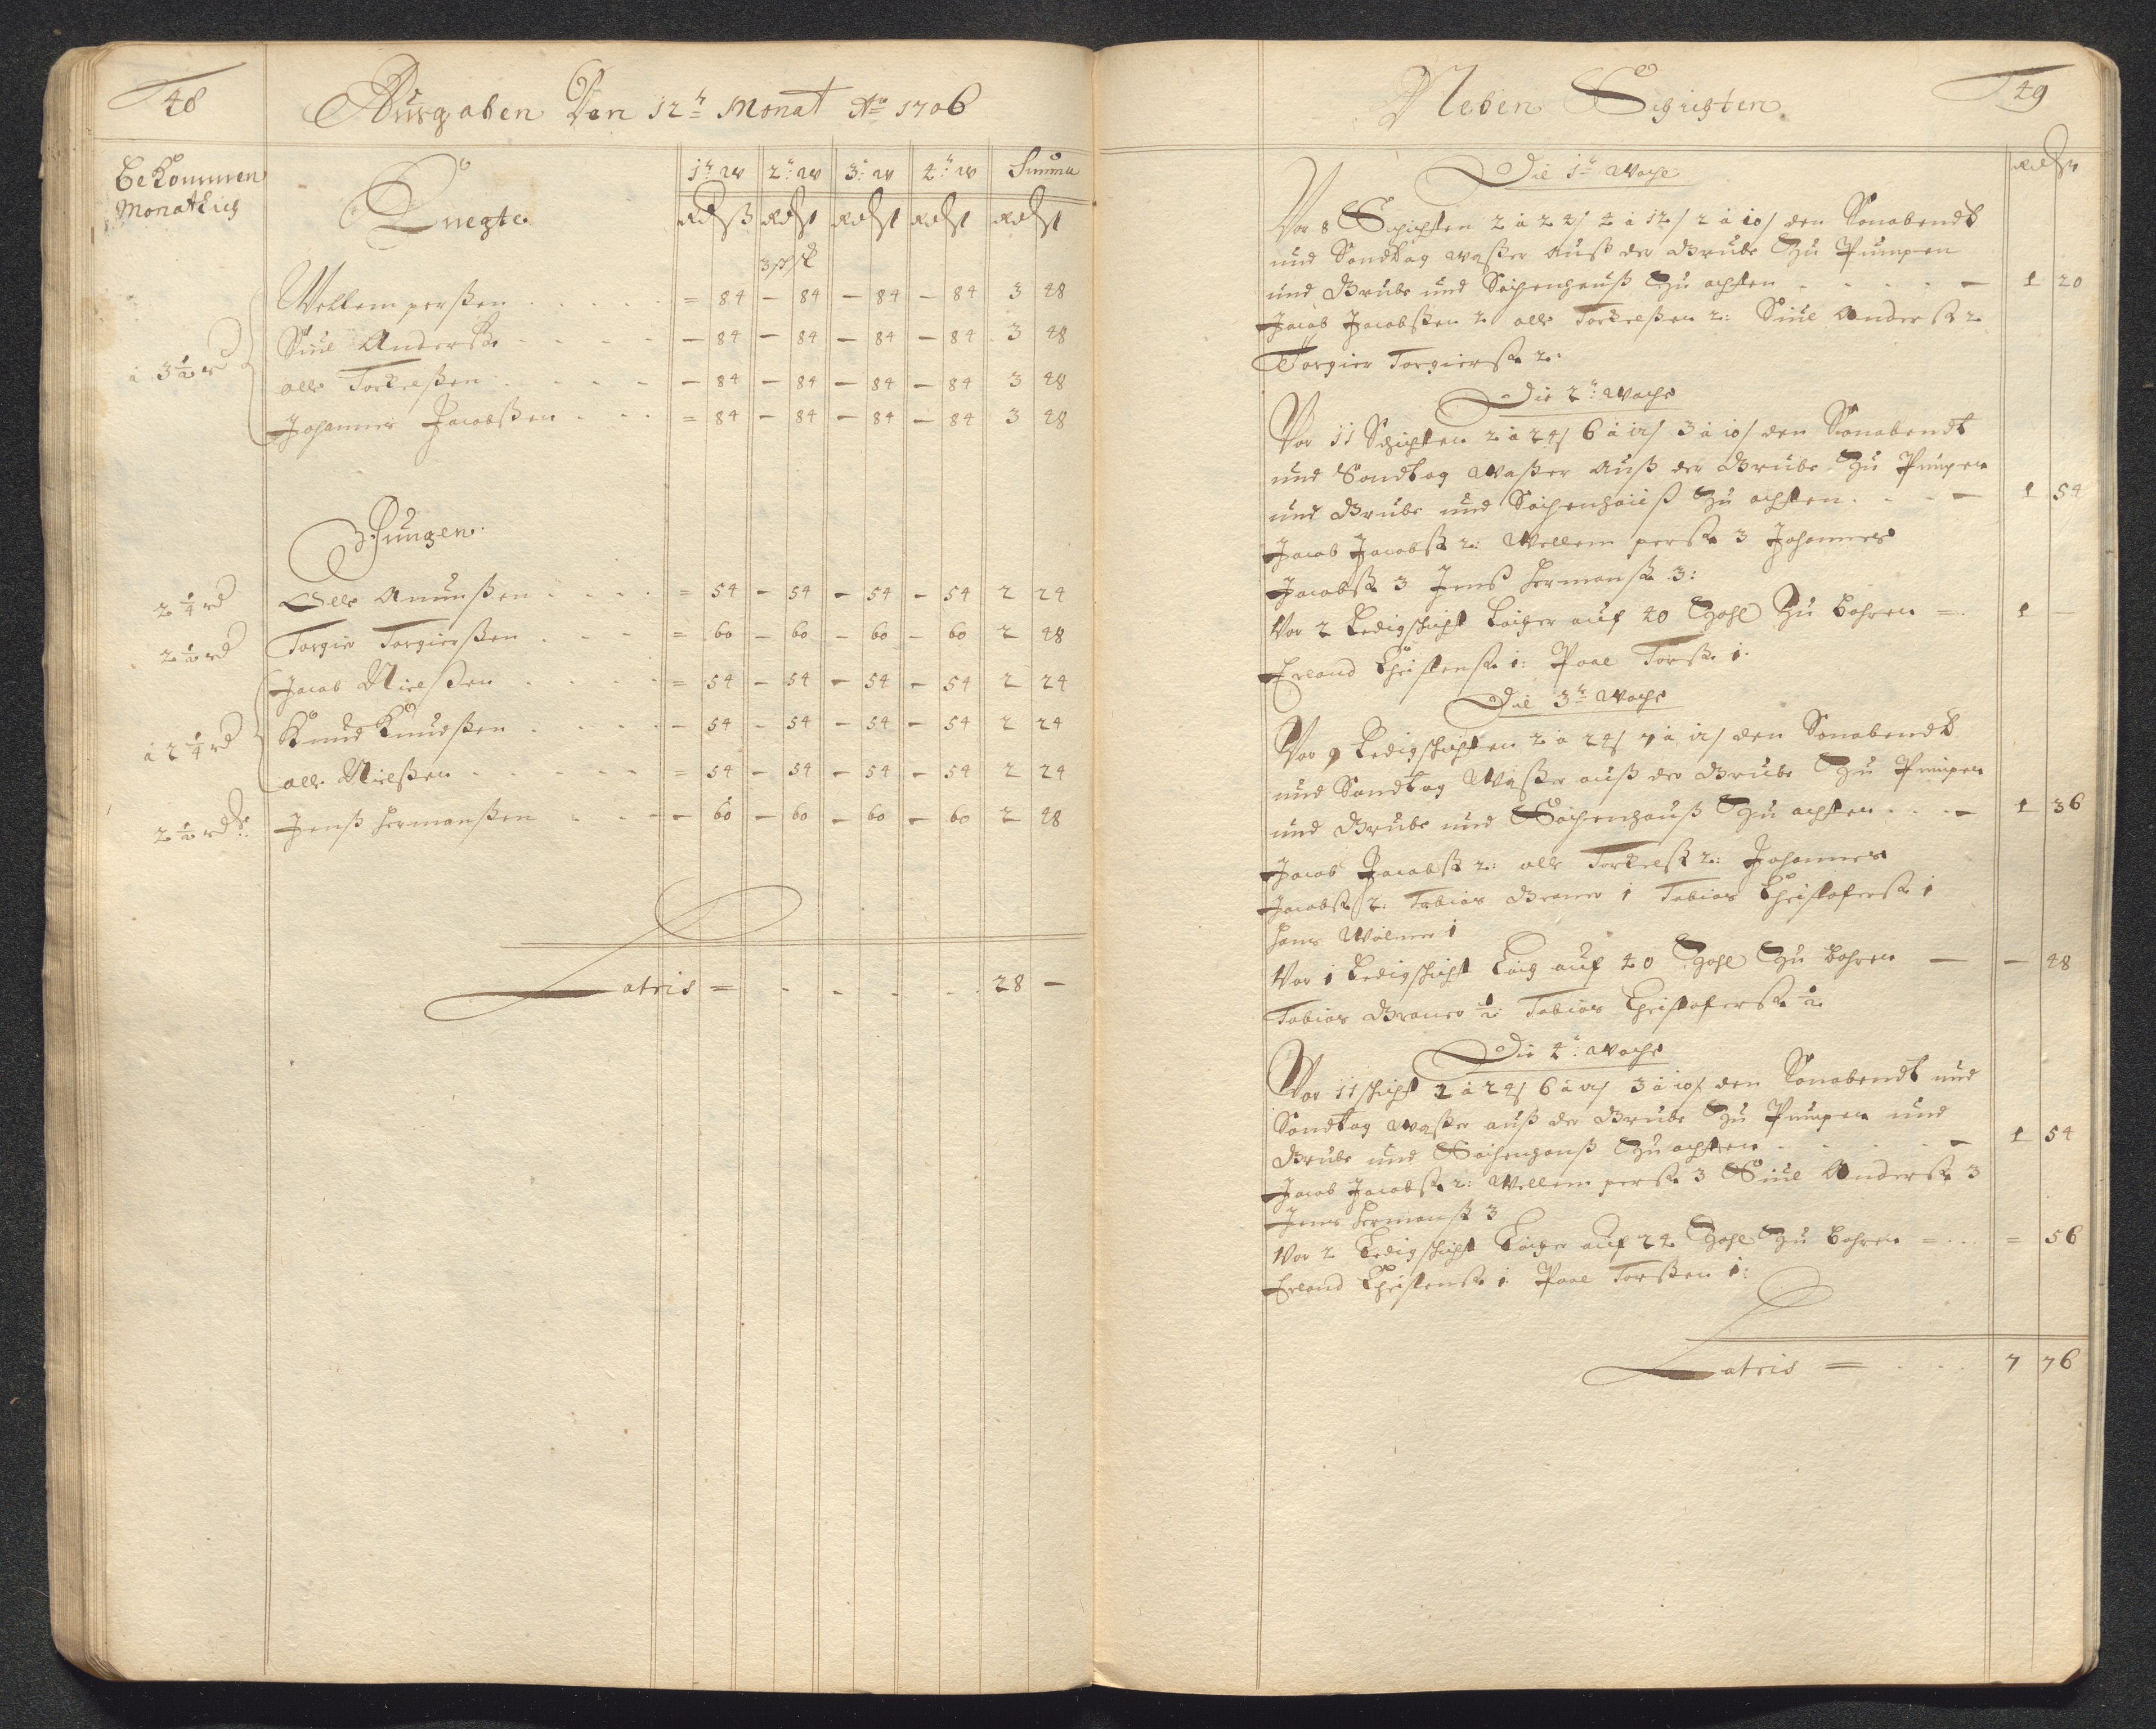 48
Ausgaben Den 12ṫ Monat Ao 1706
Bekommen
Monatlich
Knegte
1ṫ W 2ṫ W 3ṫ W 4ṫ W Summa
Rdß Rdß Rdß Rdß Rdß
Wellem perßen . . . . = 84 — 84 — 84 — 84 3 48
Siul Anderß. . . . . — 84 — 84 — 84 — 84 3 48
à 3½ rd
olle Torkelßen . . . . — 84 — 84 — 84 — 84 3 48
Johannes Jacobßen . . . = 84 — 84 — 84 — 84 3 48
Jungen
2¼ rd Olle Amunßen . . . . = 54 — 54 — 54 — 54 2 24
2½ rd Torgier Torgierßen . . . = 60 — 60 — 60 — 60 2 48
Jacob Nielßen . . . . = 54 — 54 — 54 — 54 2 24
à 2¼ rd Knud Knudßen . . . . — 54 — 54 — 54 — 54 2 24
olle Nielßen . . . . . = 54 — 54 — 54 — 54 2 24
2½ rd Jenß Hermanßen . . . — 60 — 60 — 60 — 60 2 48
Latris = . . . . . 28 —
Neben Schichten
49
Die 1ṫ Woche
Rdß
Vor 8 Schichten 2 à 24/ 4 à 12/ 2 à 10/ den Sonabendt
und Sondtag waßer auß der Grube Zu Pumpen
und Grube und Sachenhauß Zu achten . . . . — 1 20
Jacob Jacobßen 2. olle Torkelßen 2: Siul Anderß 2
Torgier Torgierß. 2:
Die 2ṫ Woche
Vor 11 Schichten 2 à 24/ 6 à 12/ 3 à 10/ den Sonabendt
und Sondtag Waßer auß der Grube Zu Pumpen
und Grube und Sachenhauß Zu achten . . . — 1 54
Jacob Jacobß 2: Wellem perß. 3 Johannes
Jacobß. 3 Jenß Hermanß. 3:
Vor 2 Ledigschicht Löcher auf 40 Zohl Zu bohren =. 1 —
Erland Christenß. 1: Paal Torß. 1.
Die 3ṫ Woche
Vor 9 Ledigschichten 2 à 24/ 7 à 12/ den Sonabendt
und Sondtag Waßer auß der Grube Zu Pumpen
und Grube und Sachenhauß Zu achten . . . — 1 36
Jacob Jacobß 2: olle Torkelß 2: Johannes
Jacobß. 2: Tobias Braner 1 Tobias Christoferß. 1
Hans Wölner 1
Vor 1 Ledigschicht Löch auf 40 Zohl Zu bohren — — 48
Tobias Braner ½ Tobias Christoferß. ½
Die 4ṫ: Woche
Vor 11 schicht 2 à 24/ 6 à 12/ 3 à 10/ den Sonabendt und
Sondtag Waßer auß der Grube Zu Pumpen und
Grube und Sachenhauß Zu achten . . . . — 1 54
Jacob Jacobß. 2: Wellem perß. 3 Siul Anderß. 3
Jens Hermanß 3
Vor 2 Ledigschicht Löcher auf 24 Zohl Zu bohren = . . . = 56
Erland Christenß. 1. Paal Torßen 1:
Latris = . . . 7 76